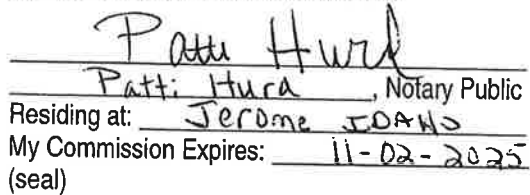 Patti Hurd
Patti Hurd, Notary Public
Residing at: Jerome IDAHO
My Commission Expires: 11-02-2025
(seal)